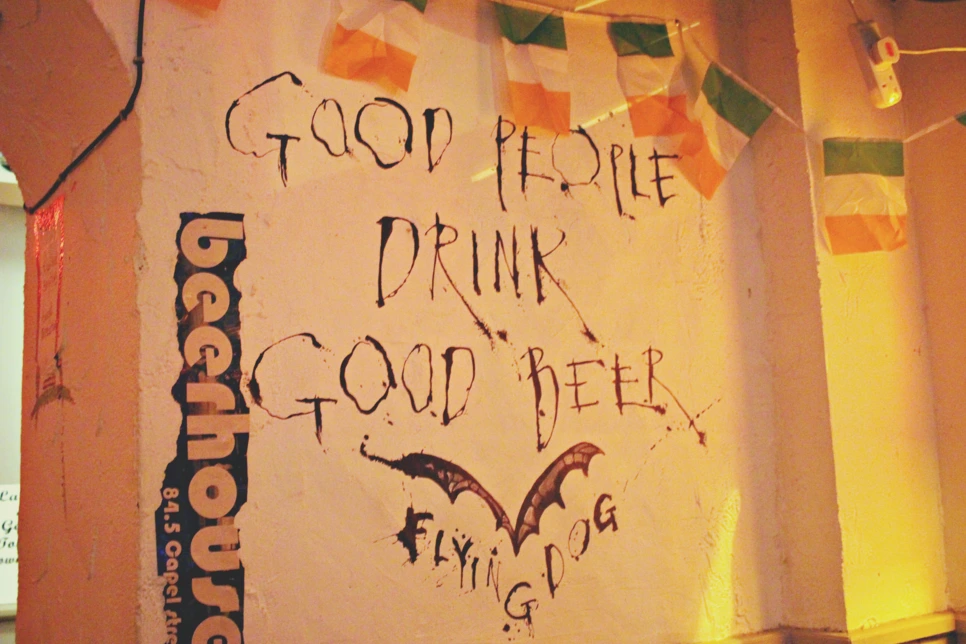 GOOD PEOPLE
DRINK
GOOD BEER
FLYING DOG
beerhouse
84.5 Capel Stre
La